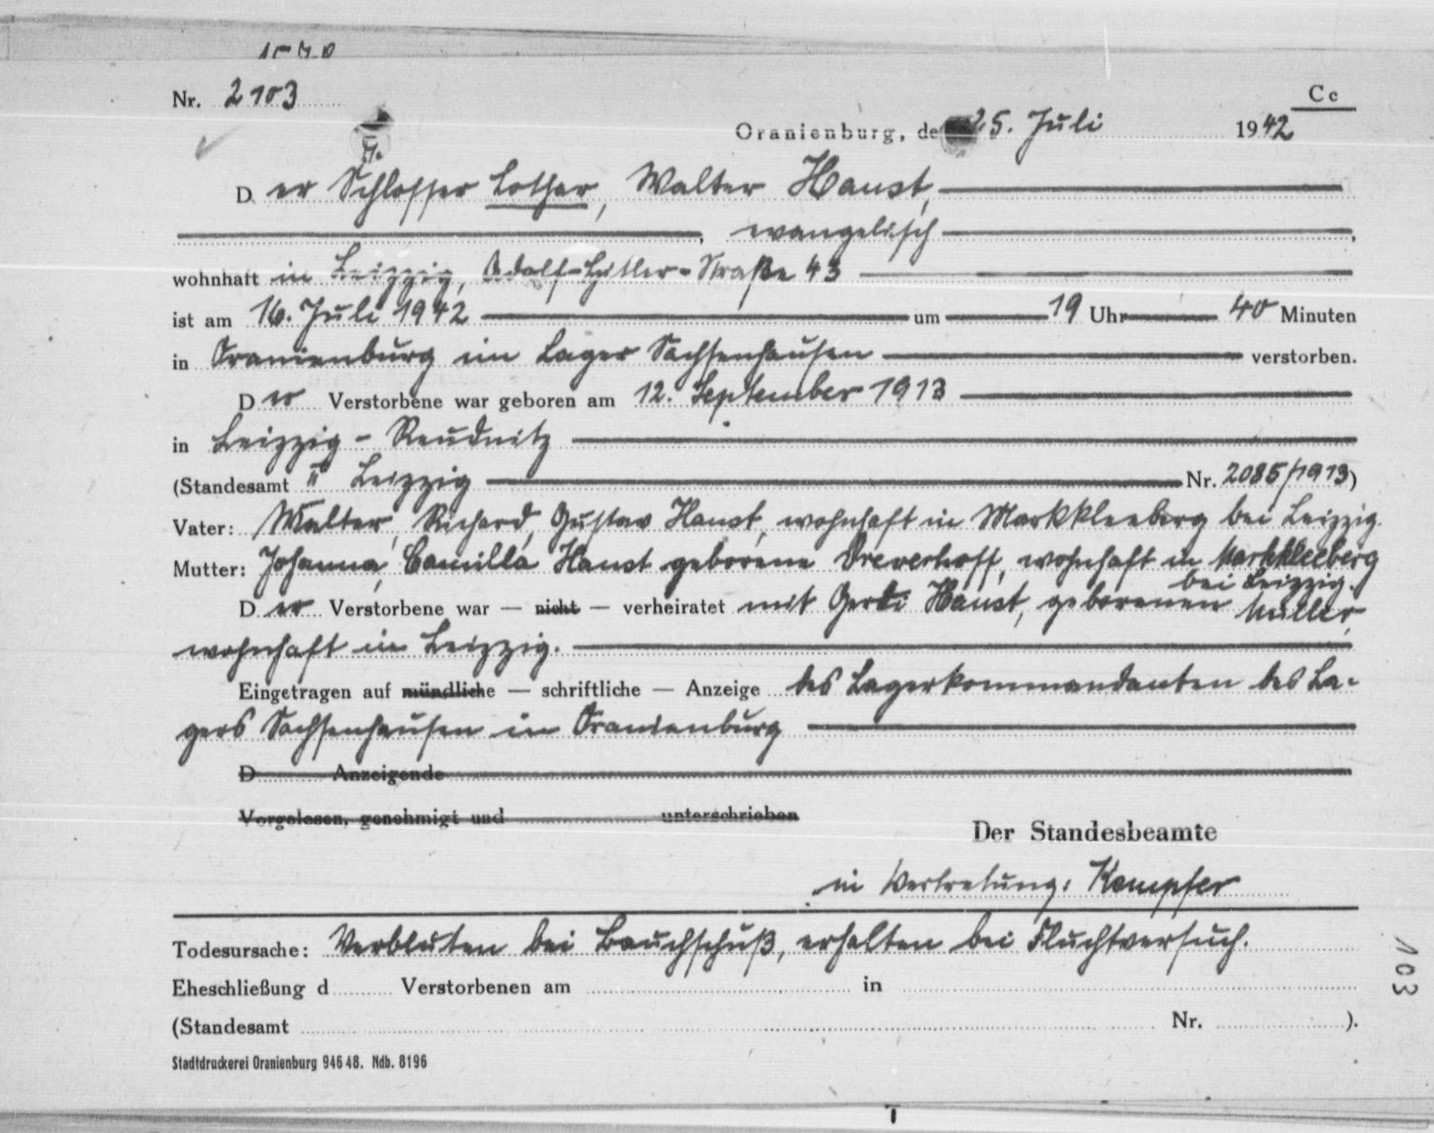 Nr. 2103
Cc
Oranienburg, de 25. Juli 1942
D er Schlosser Lothar, Walter Hanst,
, evangelisch ,
wohnhaft in Leipzig, Adolf-Hitler-Straße 43
ist am 16. Juli 1942 um 19 Uhr 40 Minuten
in Oranienburg im Lager Sachsenhausen verstorben.
D er Verstorbene war geboren am 12. September 1913
in Leipzig - Reudnitz
(Standesamt II Leipzig Nr. 2085/1913)
Vater: Walter, Richard, Gustav Hanst, wohnhaft in Markkleeberg bei Leipzig.
Mutter: Johanna, Camilla Hanst geborene wohnhaft in Markkleeberg
bei Leipzig.
D er Verstorbene war — nicht — verheiratet mit Hanst, geborenen Müller,
wohnhaft in Leipzig.
Eingetragen auf mündliche — schriftliche — Anzeige des Lagerkommandanten des La-
gers Sachsenhausen in Oranienburg
D Anzeigende
Vorgelesen, genehmigt und unterschrieben
Der Standesbeamte
in Vertretung: Kempfer
Todesursache: Verbluten bei Bauchschuß, erhalten bei Fluchtversuch.
Eheschließung d Verstorbenen am in
(Standesamt Nr. ).
Stadtdruckerei Oranienburg 946 48. Ndb. 8196
103